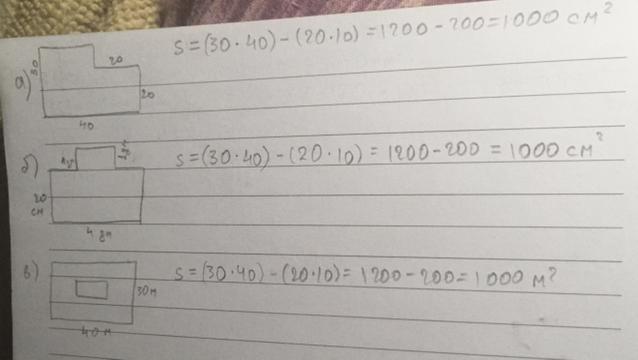 а) 30 20 20 40 S = (30·40) − (20·10) = 1200 − 200 = 1000 см²
б) 1дм 20 см 4 дм S = (30·40) − (20·10) = 1200 − 200 = 1000 см²
в) 30м 40 м S = (30·40) − (20·10) = 1200 − 200 = 1000 м²